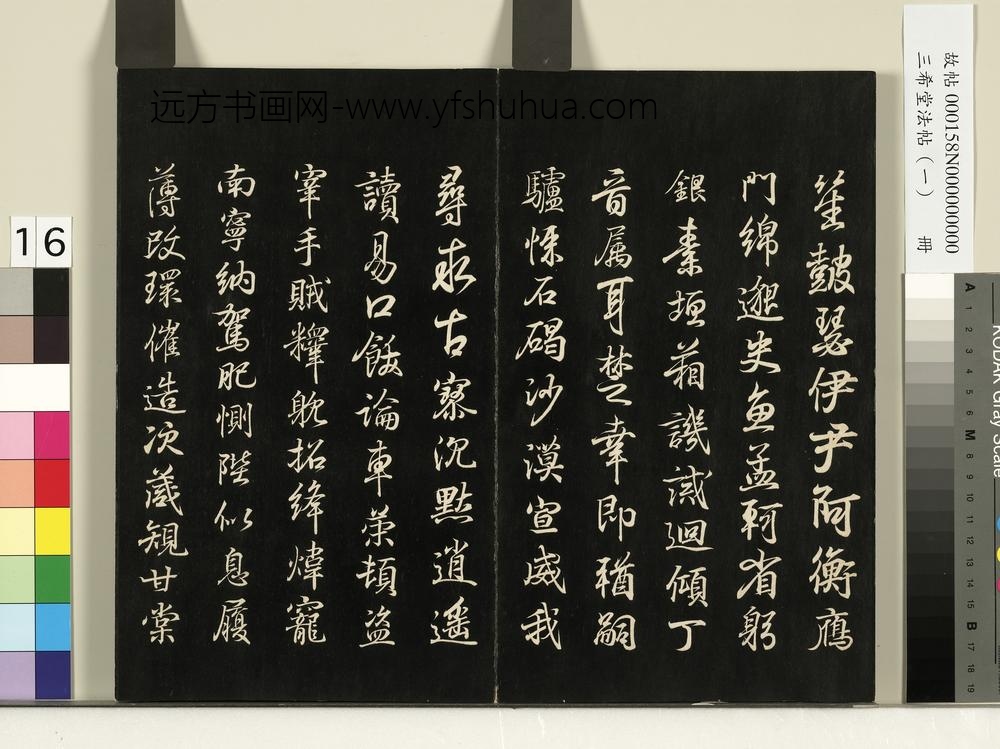 远方书画网-www.yfshuhua.com
笙鼓瑟伊尹阿衡鴈
門綿邈史魚孟軻省躬
銀素垣箱譏誡迴傾丁
音属耳楚幸即猶嗣
驢悚石碣沙漠宣威我
尋求古寮沉黙逍遥
讀易口飯論車策頓盗
宰手賊釋躭招絳煒寵
南寧納駕肥惻陛似息履
薄改環催造次箴規甘棠
故帖 000158N000000000
三希堂法帖（一） 冊
16
KODAK Gray Scale
A 1 2 3 4 5 6 M 8 9 10 11 12 13 14 15 B 17 18 19